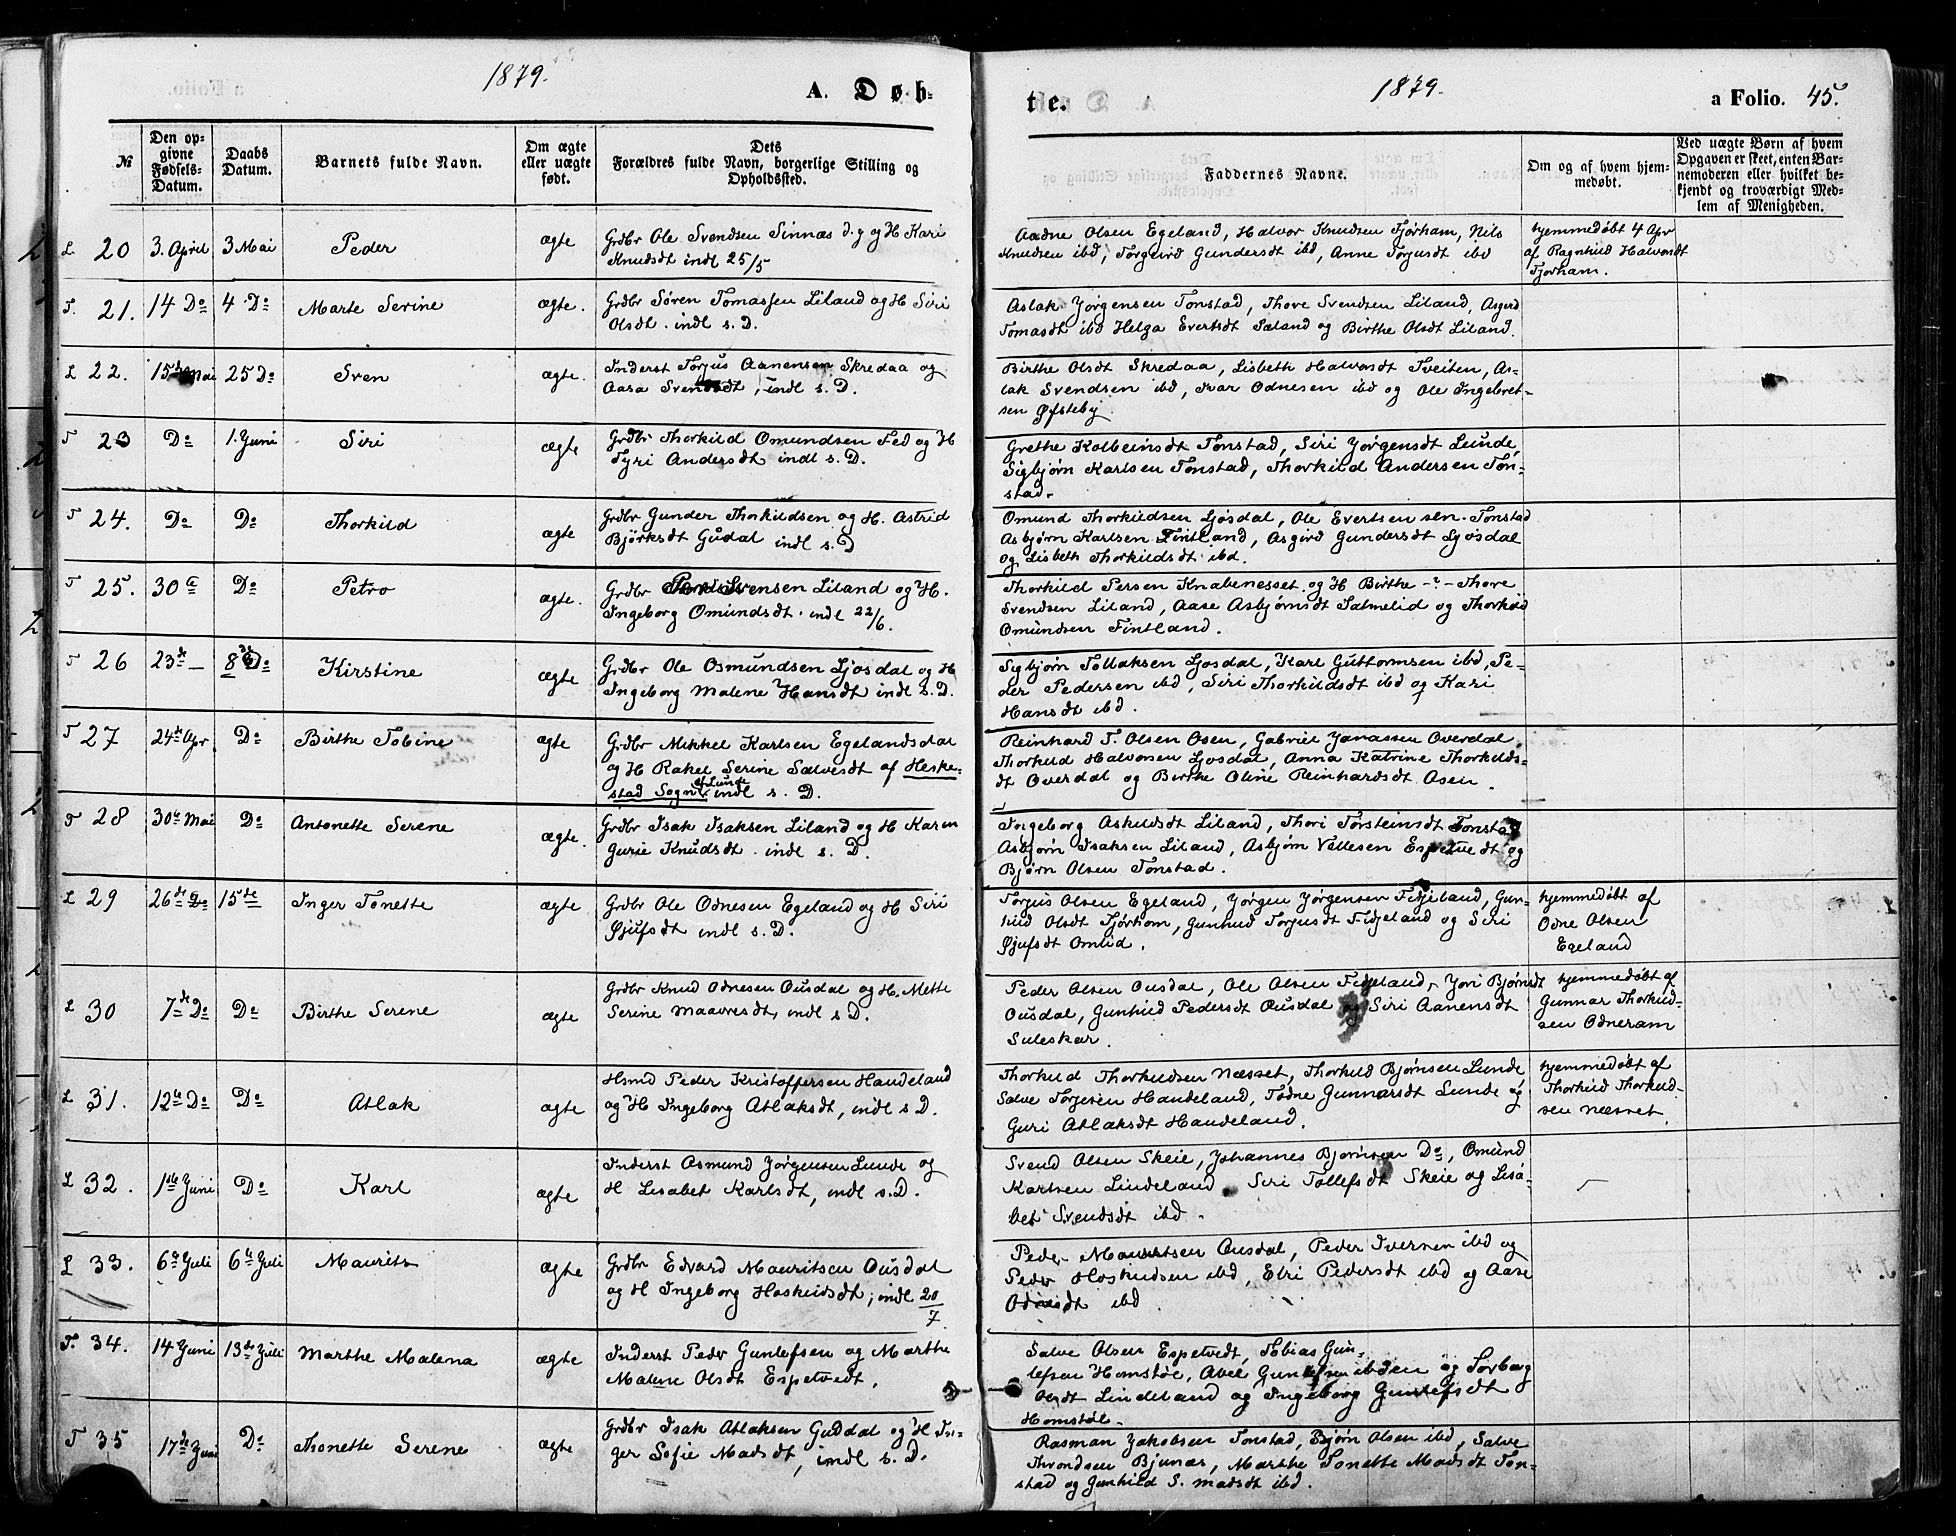 1879.
A. Døb-
№
Den op-
givne
Fødsels-
Datum.
Daabs
Datum.
Barnets fulde Navn.
Om ægte
eller uægte
født.
Dets
Forældres fulde Navn, borgerlige Stilling og
Opholdssted.
L 20 3. April 3 Mai Peder ægte Grdbr Ole Svendsen Sinnæs d.y og H Kari
Knudsdt indl 25/5
T. 21. 14 Do 4 Do Marte Serine ægte. Grdbr Søren Tomassen Liland og H Siri
Olsdt. indl s. D.
L 22. 15de Mai 25 Do Sven ægte. Inderst Torjus Aanensen Skredaa og
Aasa Svendsdt, indl s. D.
T 23 Do 1. Juni Siri ægte Grdbr Thorkild Omundsen Fed og H
Tyri Andersdt indl s. D.
T 24. Do Do Thorkild ægte Grdbr Gunder Thorkildsen og H. Astrid
Bjørksdt Gudal indl s. D
T 25. 30te Do Petro ægte. Grdbr Svensen Liland og H.
Ingeborg Omundsdt. indl 22/6.
T 26 23de — 8de Do Kirstine ægte Grdbr Ole Osmundsen Ljosdal og H
Ingeborg Malene Hansdt indl s. D.
T 27 24de Apr Do Birthe Tobine ægte Grdbr Mikkel Karlsen Egelandsdal
og H Rakel Serine Salvesdt af Heske-
stad Sogn af Lunde indl s. D.
T 28 30te Mai Do Antonette Serene ægte. Grdbr Isak Isaksen Liland og H Karen
Gurie Knudsdt. indl s. D.
L 29 26de Do 15de Inger Tonette ægte Grdbr Ole Odnesen Egeland og H Siri
Øjufsdt indl s. D.
L 30 7de Do Do Birthe Serene ægte Grdbr Knud Odnesen Ousdal og H. Mette
Serine Maavresdt, indl s D.
L 31. 12te Do Do Atlak ægte Hsmd Peder Kristoffersen Haudeland
og H Ingeborg Atlaksdt, indl s D.
L 32. 1ste Juni Do Karl ægte Inderst Asmund Jørgensen Lunde og
H Lisabet Karlsdt, indl s. D.
L 33. 6te Juli 6te Juli Maurits ægte Grdbr Edvard Mauritsen Ousdal
og H Ingeborg Hoskuldsdt; indl 20/7
T. 34. 14 Juni 13de Juli Marthe Malena ægte Inderst Peder Gunlefsen og Marthe
Malene Olsdt Espetvedt.
T 35 17de Juni Do Thonette Serene ægte Grdbr Isak Atlaksen Guddal og H In-
ger Sofie Madsdt, indl s. D.
te.
1879.
a Folio. 45.
Faddernes Navne.
Om og af hvem hjem-
medøbt.
Ved uægte Børn af hvem
Opgaven er skeet, enten Bar-
nemoderen eller hvilket be-
kjendt og troværdigt Med-
lem af Menigheden.
Aadne Olsen Egeland, Halvor Knudsen Tjørham, Nils
Knudsen ibd, Torgierd Gundersdt ibd, Anne Torjusdt ibd
hjemmedøbt 4 Apr
af Ragnhild Halvorsdt
Tjorham.
Aslak Jørgensen Tonstad, Thore Svendsen Liland, Asgerd
Tomasdt ibd Helga Evertsdt Sæland og Birthe Olsdt Liland.
Birthe Olsdt Skredaa, Lisbeth Halvorsdt Tveiten, As-
lak Svendsen ibd, Ivar Odnesen ibd og Ole Ingebret-
sen Øfsteby.
Grethe Kolbeinsdt Tonstad, Siri Jørgensdt Lunde,
Sigbjørn Karlsen Tonstad, Thorkild Andersen Ton-
stad.
Omund Thorkildsen Ljosdal, Ole Evertsen sen. Tonstad
Asbjørn Karlsen Fintland, Asgird Gundersdt Ljosdal
og Lisbeth Thorkildsdt ibd.
Thorkild Persen Knabenesset og H Birthe — " — Thore
Svendsen Liland, Aase Asbjørnsdt Salmelid og Thorkild
Omundsen Fintland.
Sigbjørn Tollaksen Ljosdal, Karl Guttormsen ibd, Pe-
der Pedersen ibd, Siri Thorkildsdt ibd og Kari
Hansdt ibd.
Reinhard T. Olsen Osen, Gabriel Janassen Overdal,
Thorkild Halvorsen Ljosdal, Anna Katrine Thorkilds-
dt Overdal og Birthe Oline Reinhardsdt Osen.
Ingeborg Askildsdt Liland, Thori Torsteinsdt Tonstad
Asbjørn Isaksen Liland, Asbjørn Vellesen Espetvedt og
Bjørn Olsen Tonstad.
Torjus Olsen Egeland, Jørgen Jørgensen Fidjeland, Gun-
hild Olsdt Tjørhom, Gunhild Torjusdt Fidjeland og Siri
Øjufsdt Omlid.
hjemmedøbt af
Odne Olsen
Egeland
Peder Olsen Ousdal, Ole Olsen Fidjeland, Jori Bjørnsdt
Ousdal, Gunhild Pedersdt Ousdal og Siri Aanensdt
Suleskar.
hjemmedøbt af
Gunnar Thorkild-
sen Odneram
Thorkild Thorkildsen Næsset, Thorkild Bjørnsen Lunde
Salve Torjesen Haudeland, Todne Gunnarsdt Lunde og
Guri Atlaksdt Haudeland.
hjemmedøbt af
Thorkild Thorkild-
sen Næsset.
Svend Olsen Skeie, Johannes Bjørnsen Do, Omund
Karlsen Lindeland Siri Tollefsdt Skeie og Lisa-
bet Svendsdt ibd.
Peder Mauritsen Ousdal, Peder Iversen ibd og
Peder Hoskuldsen ibd, Elri Pedersdt ibd og Aase
Odnesdt ibd.
Salve Olsen Espetvedt, Tobias Gun-
lefsen Homstøl, Abel Gunlefsen ibden og Torborg
Olsdt Lindeland og Ingeborg Gunlefsdt
Homstøl.
Rasman Jakobsen Tonstad, Bjørn Olsen ibd, Salve
Throndsen Bjunæs, Marthe Tonette Madsdt Ton-
stad og Gunhild S. Madsdt ibd.